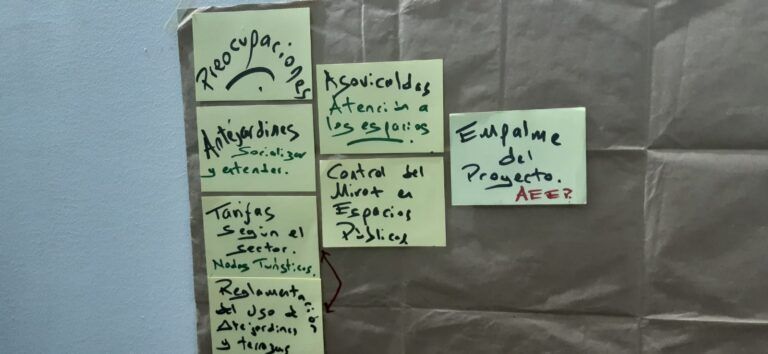 Preocupaciones
Antejardines
Socializar
y entender.
Tarifas
según el
sector.
Nodos Turísticos.
Reglamentación
del Uso de
Antejardines
y terrazas
Asovicaldas
Atención a
los espacios
Control del
en
Espacios
Públicos
Empalme
del
Proyecto.
AEEP.